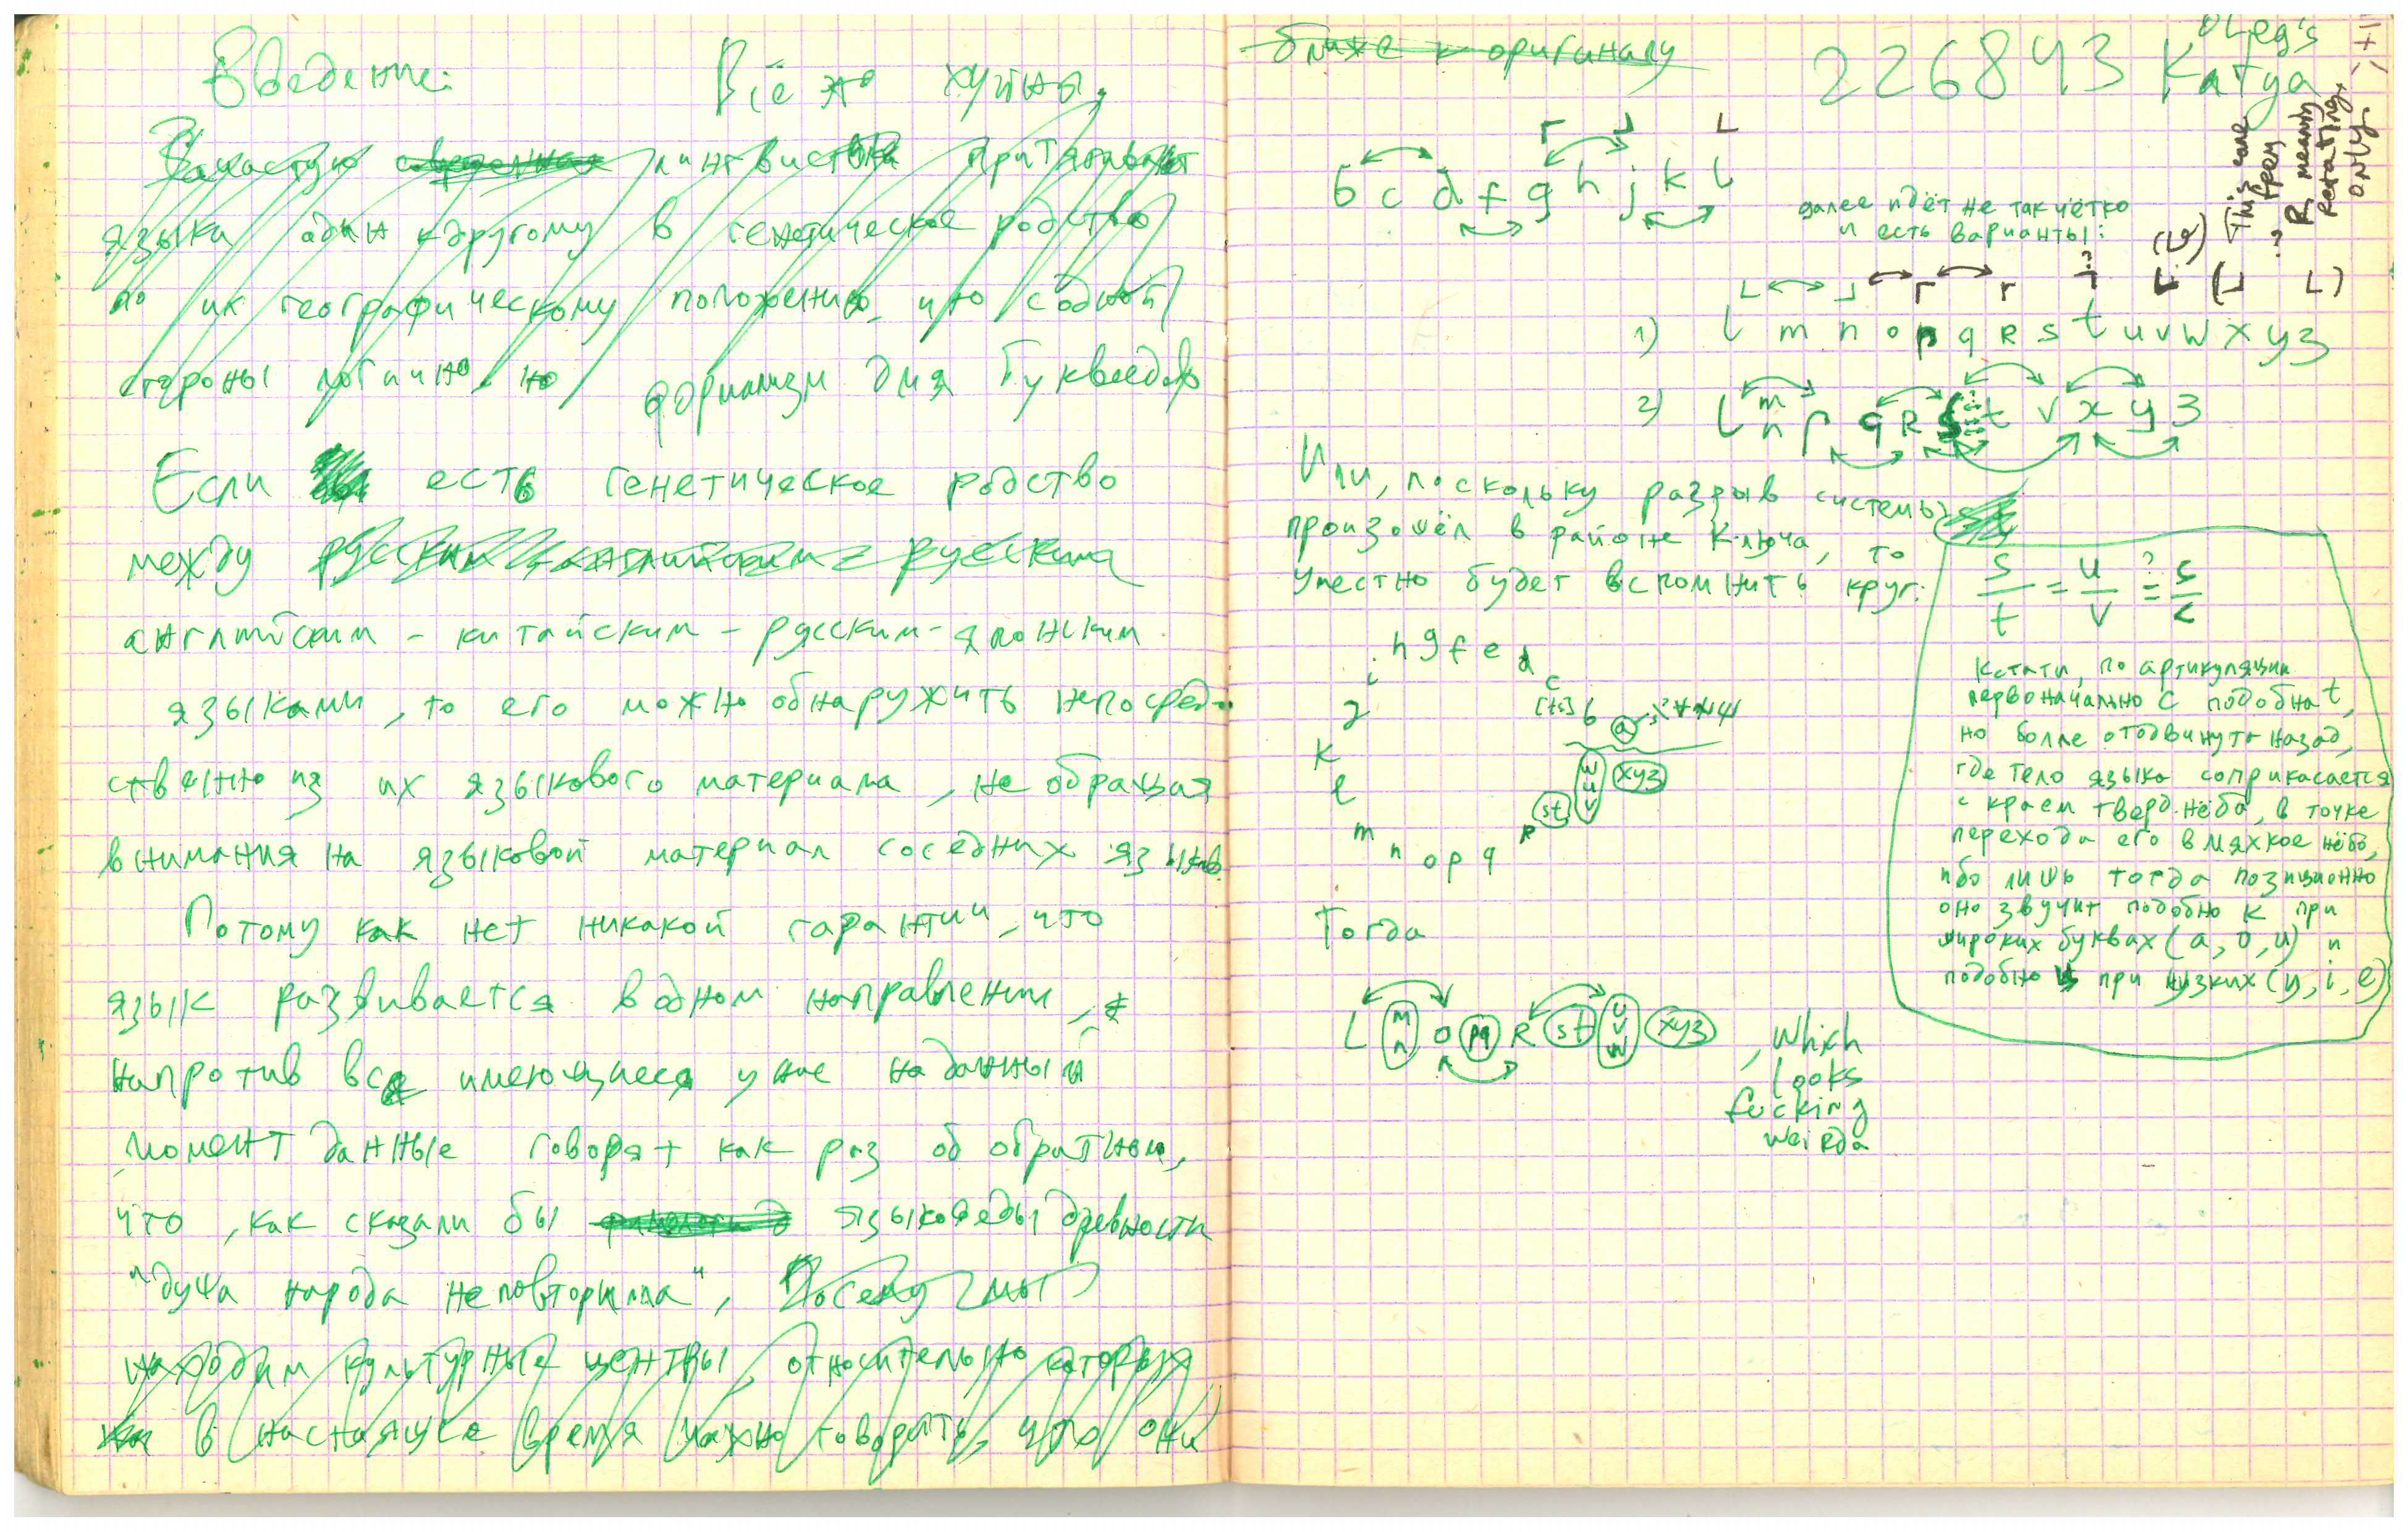 Введение:
Всё не хуйны,
Зачастую лингвисты притягивают
языки один к другому в генетическое родство
по их географическому положению, что с одной
стороны логично, но формализм для буквоедов
Если есть генетическое родство
между русским
английским - китайским - русским - японским
языками, то его можно обнаружить непосред-
ственно из их языкового материала, не обращая
внимания на языковой материал соседних языков.
Потому как нет никакой гарантии, что
язык развивается в одном направлении,
напротив все имеющиеся у нас на данный
момент данные говорят как раз об обратном,
что, как сказали бы языковеды древности
"душа народа неповторима", Посему мы
находим культурные центры, относительно которых
в настоящее время можно говорить, что они
ближе к оригиналу
226843 Oleg's
Katya
This came
from
R, meanly
Retating
only.
Г L L
b c d f g h j k l
далее идёт не так чётко
и есть варианты:
1) l m n o p q R s t u v w x y z
2) l m n p q R t v x y z
Или, поскольку разрыв системы
произошёл в районе ключа, то
уместно будет вспомнить круг:
h g f e d c
i
[ts] b a
J
K
l
m n o p q R st u v w xyz
Тогда
L m n o pq R st u v w xyz
, which
looks
fucking
weirda
s/t = u/v ?= s/c
Кстати, по артикуляции
первоначально C подобна t,
но более отодвинута назад,
где тело языка соприкасается
с краем тверд. нёба, в точке
перехода его в мяхкое нёбо,
ибо лишь тогда позиционно
оно звучит подобно K при
широких буквах (a, o, u) и
подобно ц при низких (y, i, e)